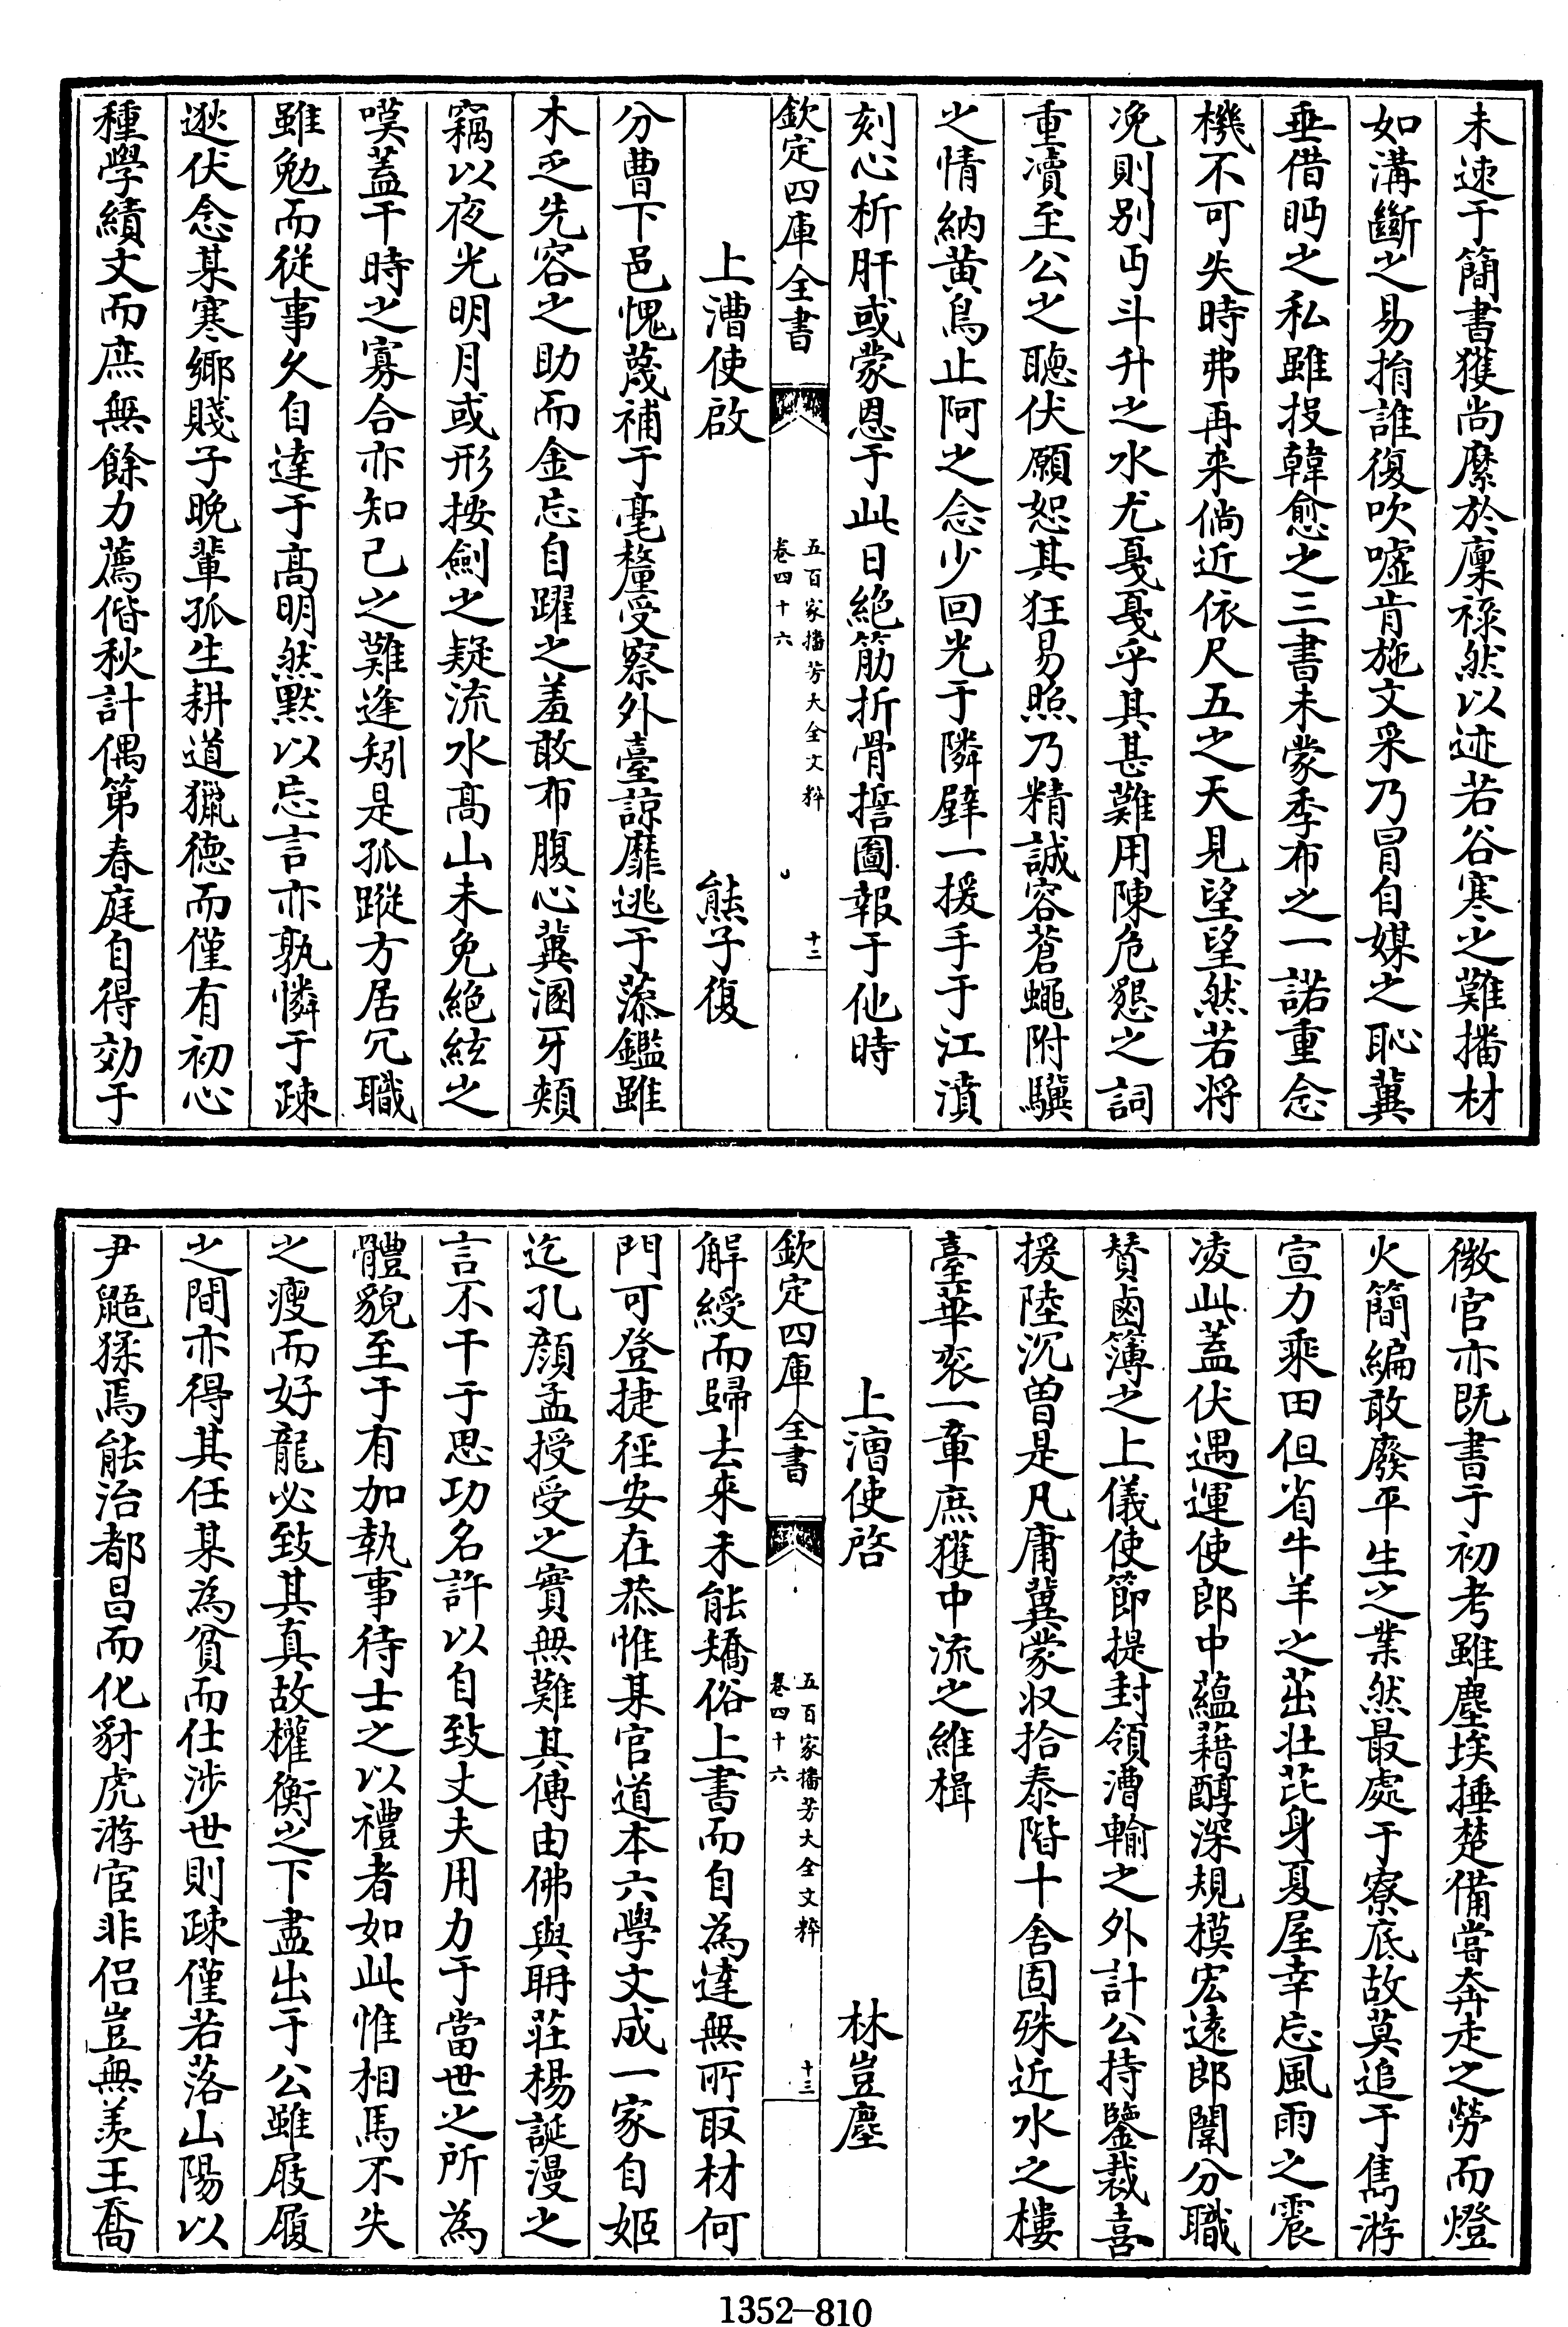 未速于簡書獲尚縻於廩禄然以迹若谷寒之難播材
如溝斷之易捐誰復吹噓肯施文采乃冒自媒之恥冀
垂借眄之私雖投韓愈之三書未蒙季布之一諾重念
機不可失時弗再来倘近依尺五之天見望望然若将
浼則别丐斗升之水尤戞戞乎其甚難用陳危懇之詞
重凟至公之聽伏願恕其狂易照乃精誠容蒼蠅附驥
之情納黄鳥止阿之念少回光于隣壁一援手于江濆
刻心析肝或蒙恩于此日絶筋折骨㨗圖報于他時
欽定四庫全書
五百家播芳大全文粹
卷四十六
十二
上漕使啟
熊子復
分曹下邑愧蔑補于毫釐受察外臺諒靡逃于藻鑑雖
木乏先容之助而金忘自躍之羞敢布腹心冀溷牙頰
竊以夜光明月或形按劍之疑流水高山未免絶絃之
嘆蓋干時之寡合亦知己之難逢矧是孤蹤方居冗職
雖勉而從事久自達于高明然默以忘言亦孰憐于疎
逖伏念某寒鄉賤子晚輩孤生耕道獵徳而僅有初心
種學績文而庶無餘力薦偕秋計偶第春庭自得効于
微官亦既書于初考雖塵埃捶楚備嘗奔走之勞而燈
火簡編敢廢平生之業然最處于寮底故莫追于雋游
宣力乘田但省牛羊之茁壯芘身夏屋幸忘風雨之震
凌此蓋伏遇運使郎中藴藉醇深規模宏逺郎闈分職
賛鹵簿之上儀使節提封領漕輸之外計公持鑒裁喜
援陸沉曾是凡庸冀蒙収拾泰階十舍固殊近水之樓
臺華衮一章庶獲中流之維楫
上漕使啓
林豈塵
欽定四庫全書
五百家播芳大全文粹
卷四十六
十三
解綬而歸去来未能矯俗上書而自為達無所取材何
門可登捷徑安在恭惟某官道本六學文成一家自姬
迄孔顔孟授受之實無難其傳由佛與耼莊楊誕漫之
言不干于思功名許以自致丈夫用力于當世之所為
體貌至于有加執事待士之以禮者如此惟相馬不失
之瘦而好龍必致其真故權衡之下盡出于公雖屐履
之間亦得其任某為貧而仕涉世則疎僅若落山陽以
尹鼯猱焉能治都昌而化豺虎游宦非侣豈無羨王喬
1352-810